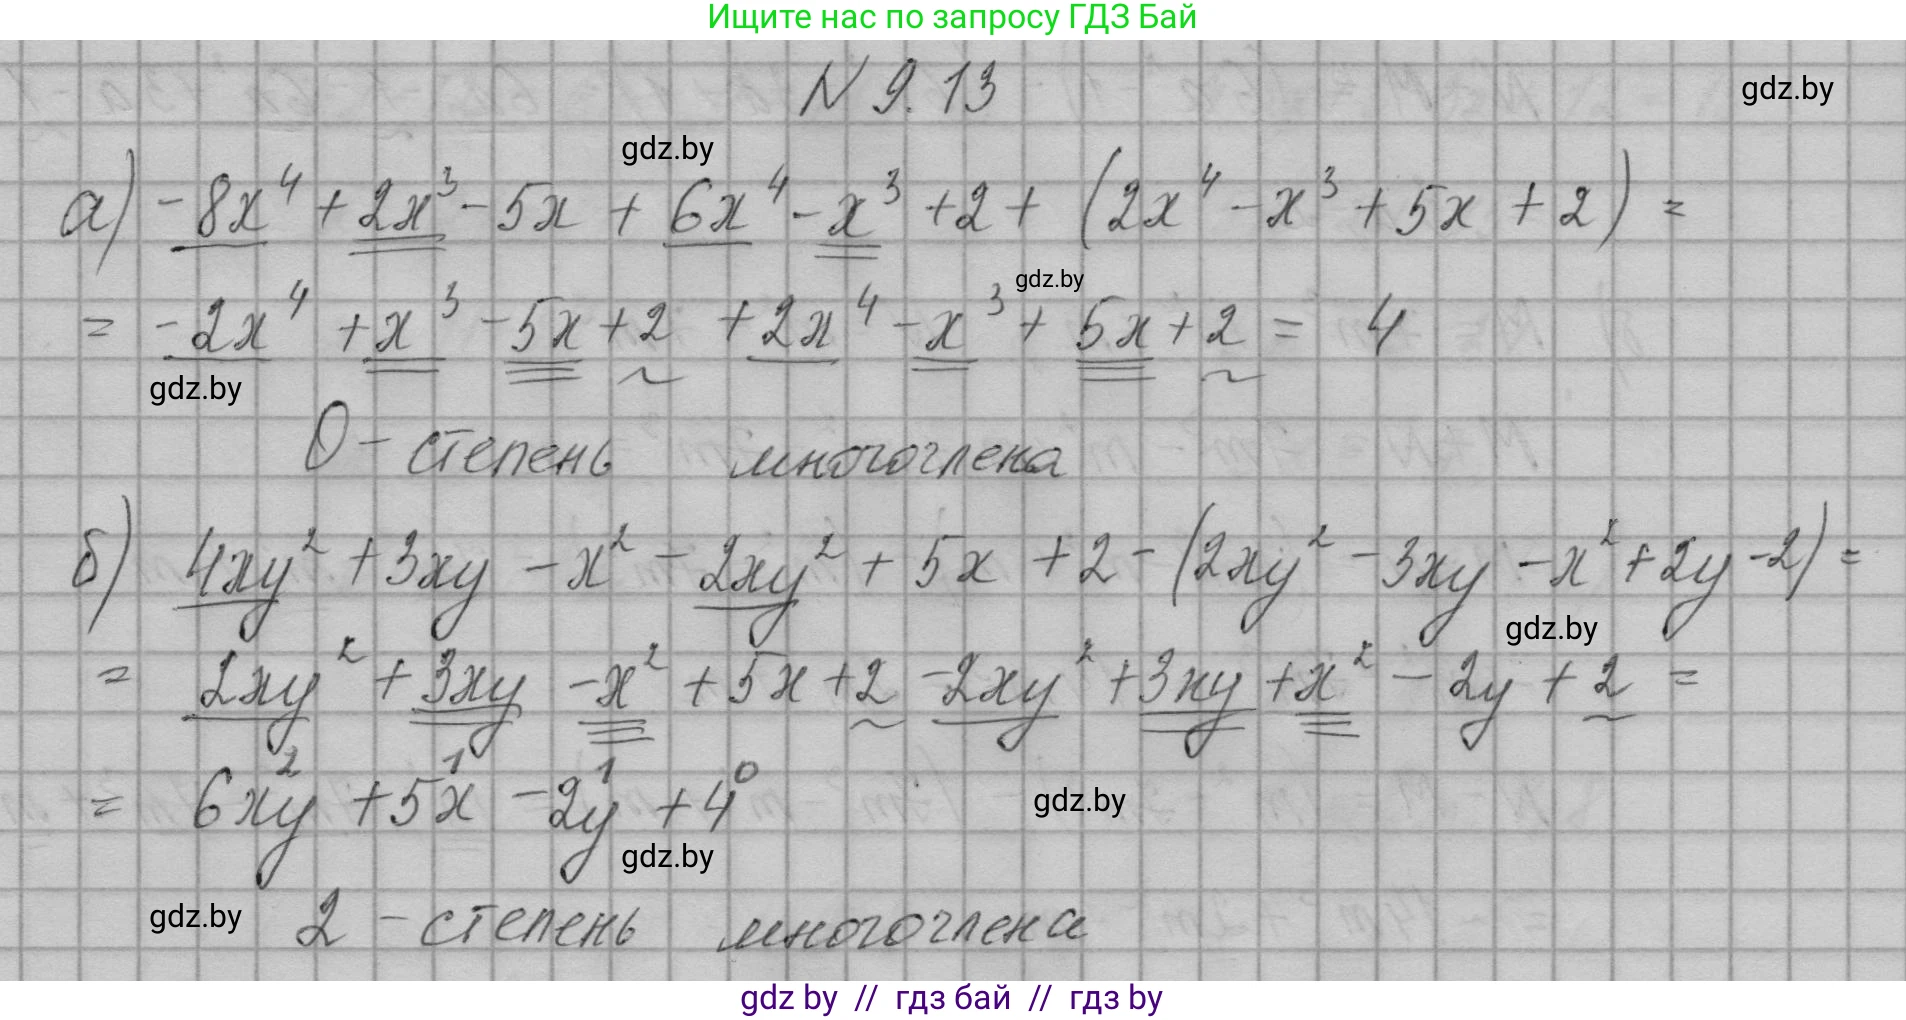 Ищите нас по запросу ГДЗ Бай
N 9.13
gdz.by
gdz.by
а) -8x⁴ + 2x³ - 5x + 6x⁴ - x³ + 2 + (2x⁴ - x³ + 5x + 2) =
gdz.by
= -2x⁴ + x³ - 5x + 2 + 2x⁴ - x³ + 5x + 2 = 4
gdz.by
0 - степень многочлена
б) 4xy² + 3xy - x² - 2xy² + 5x + 2 - (2xy² - 3xy - x² + 2y - 2) =
gdz.by
= 2xy² + 3xy - x² + 5x + 2 - 2xy² + 3xy + x² - 2y + 2 =
= 6xy² + 5x¹ - 2y¹ + 4⁰
gdz.by
gdz.by
gdz.by
2 - степень многочлена
gdz by // гдз бай // гдз by